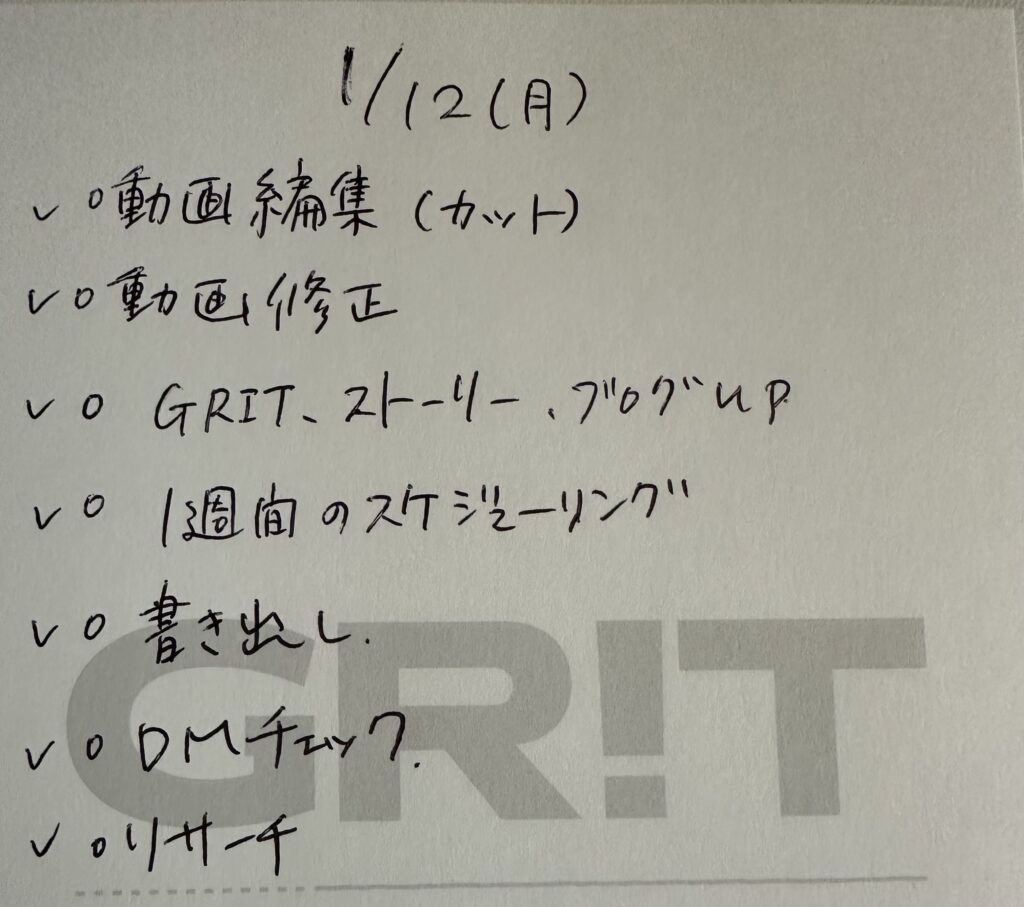 1/12(月)
✓○動画編集(カット)
✓○動画修正
✓○ GRIT、ストーリー、ブログUP
✓○ 1週間のスケジューリング
✓○書き出し.
✓○DMチェック.
✓○リサーチ
GR!T